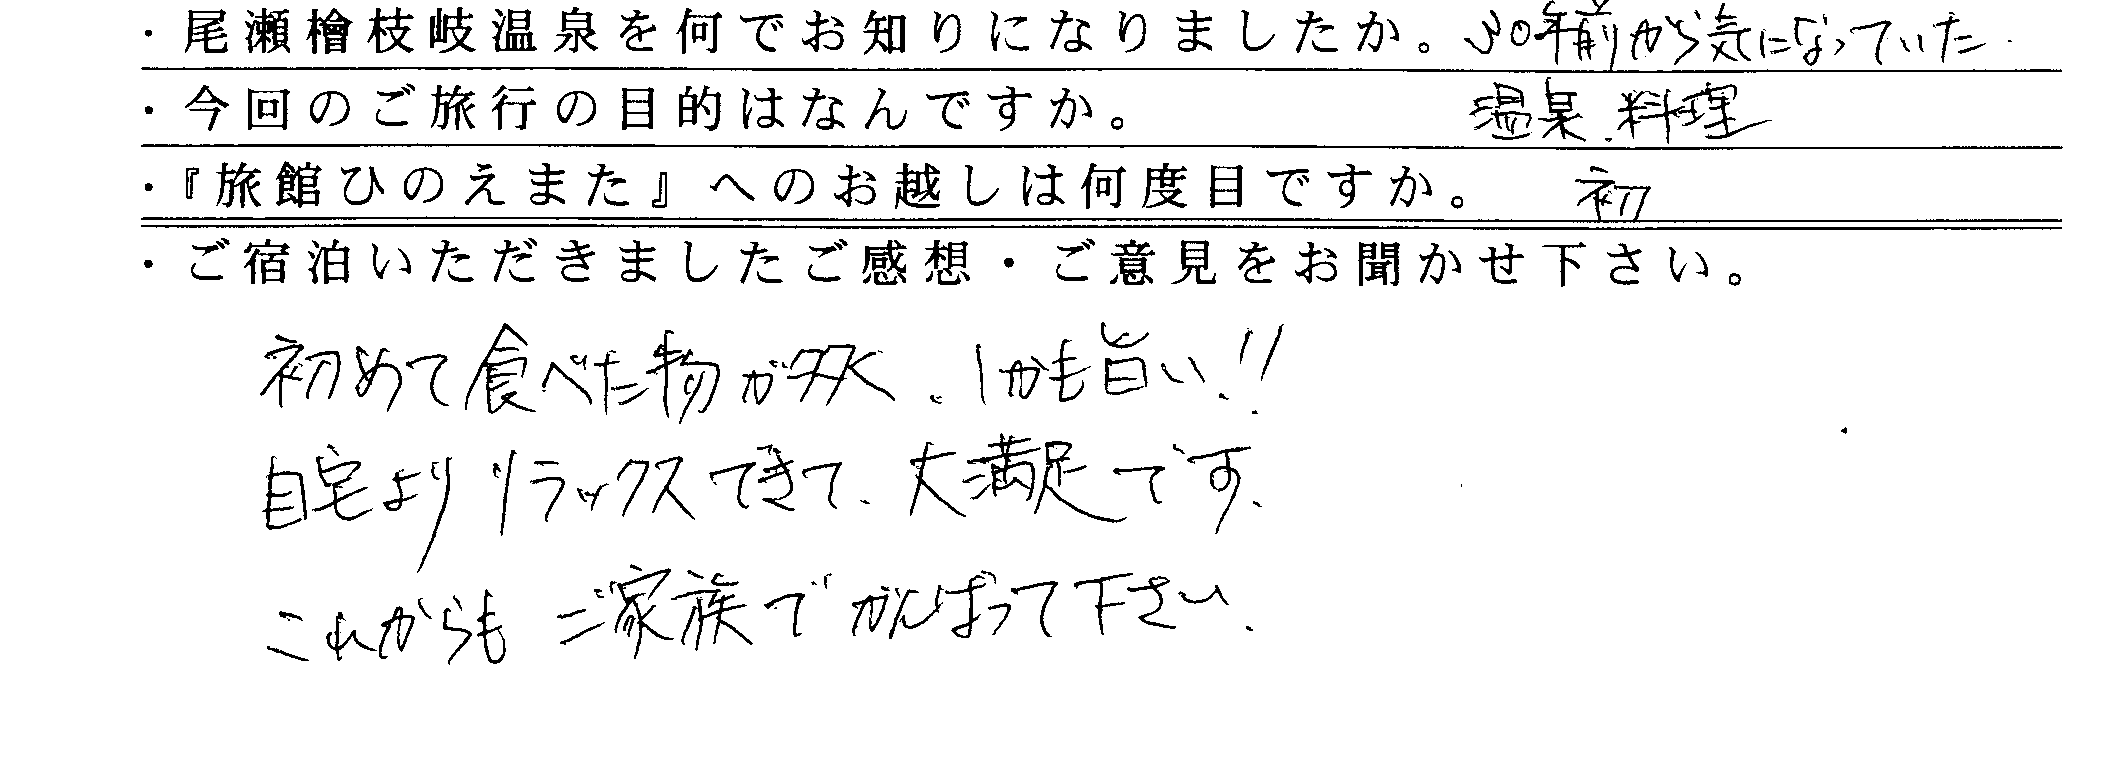 ・尾瀬檜枝岐温泉を何でお知りになりましたか。30年前から気になっていた.
・今回のご旅行の目的はなんですか。 温泉.料理
・『旅館ひのえまた』へのお越しは何度目ですか。 初
・ご宿泊いただきましたご感想・ご意見をお聞かせ下さい。
初めて食べた物が多く、しかも旨い!!
自宅よりリラックスできて、大満足です.
これからもご家族でがんばって下さい.